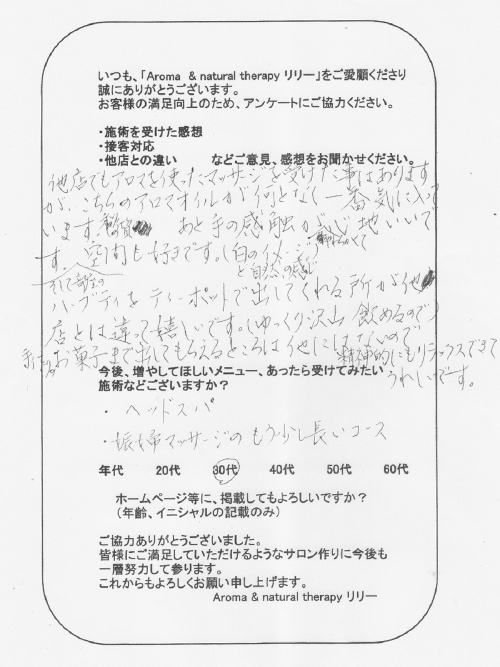 いつも、「Aroma & natural therapy リリー」をご愛顧くださり
誠にありがとうございます。
お客様の満足向上のため、アンケートにご協力ください。
・施術を受けた感想
・接客対応
・他店との違い などご意見、感想をお聞かせください。
他店でもアロマを使ったマッサージを受けた事はあります
が、こちらのアロマオイルが何となく一番気に入って
います。 あと手の感触が 心地いいで
す。空間も好きです。(白のイメージ
と自然の感じ
そして部屋の
ハーブティを ティーポットで出してくれる所が他
店とは違って嬉しいです。(ゆっくり沢山 飲めるので)
お菓子まで出してもらえるところは他にはないので
精神的にもリラックスできて
うれしいです。
今後、増やしてほしいメニュー、あったら受けてみたい
施術などございますか?
・ ヘッドスパ
・妊婦マッサージの もう少し長いコース
年代 20代 30代 40代 50代 60代
ホームページ等に、掲載してもよろしいですか?
(年齢、イニシャルの記載のみ)
ご協力ありがとうございました。
皆様にご満足していただけるようなサロン作りに今後も
一層努力して参ります。
これからもよろしくお願い申し上げます。
Aroma & natural therapy リリー